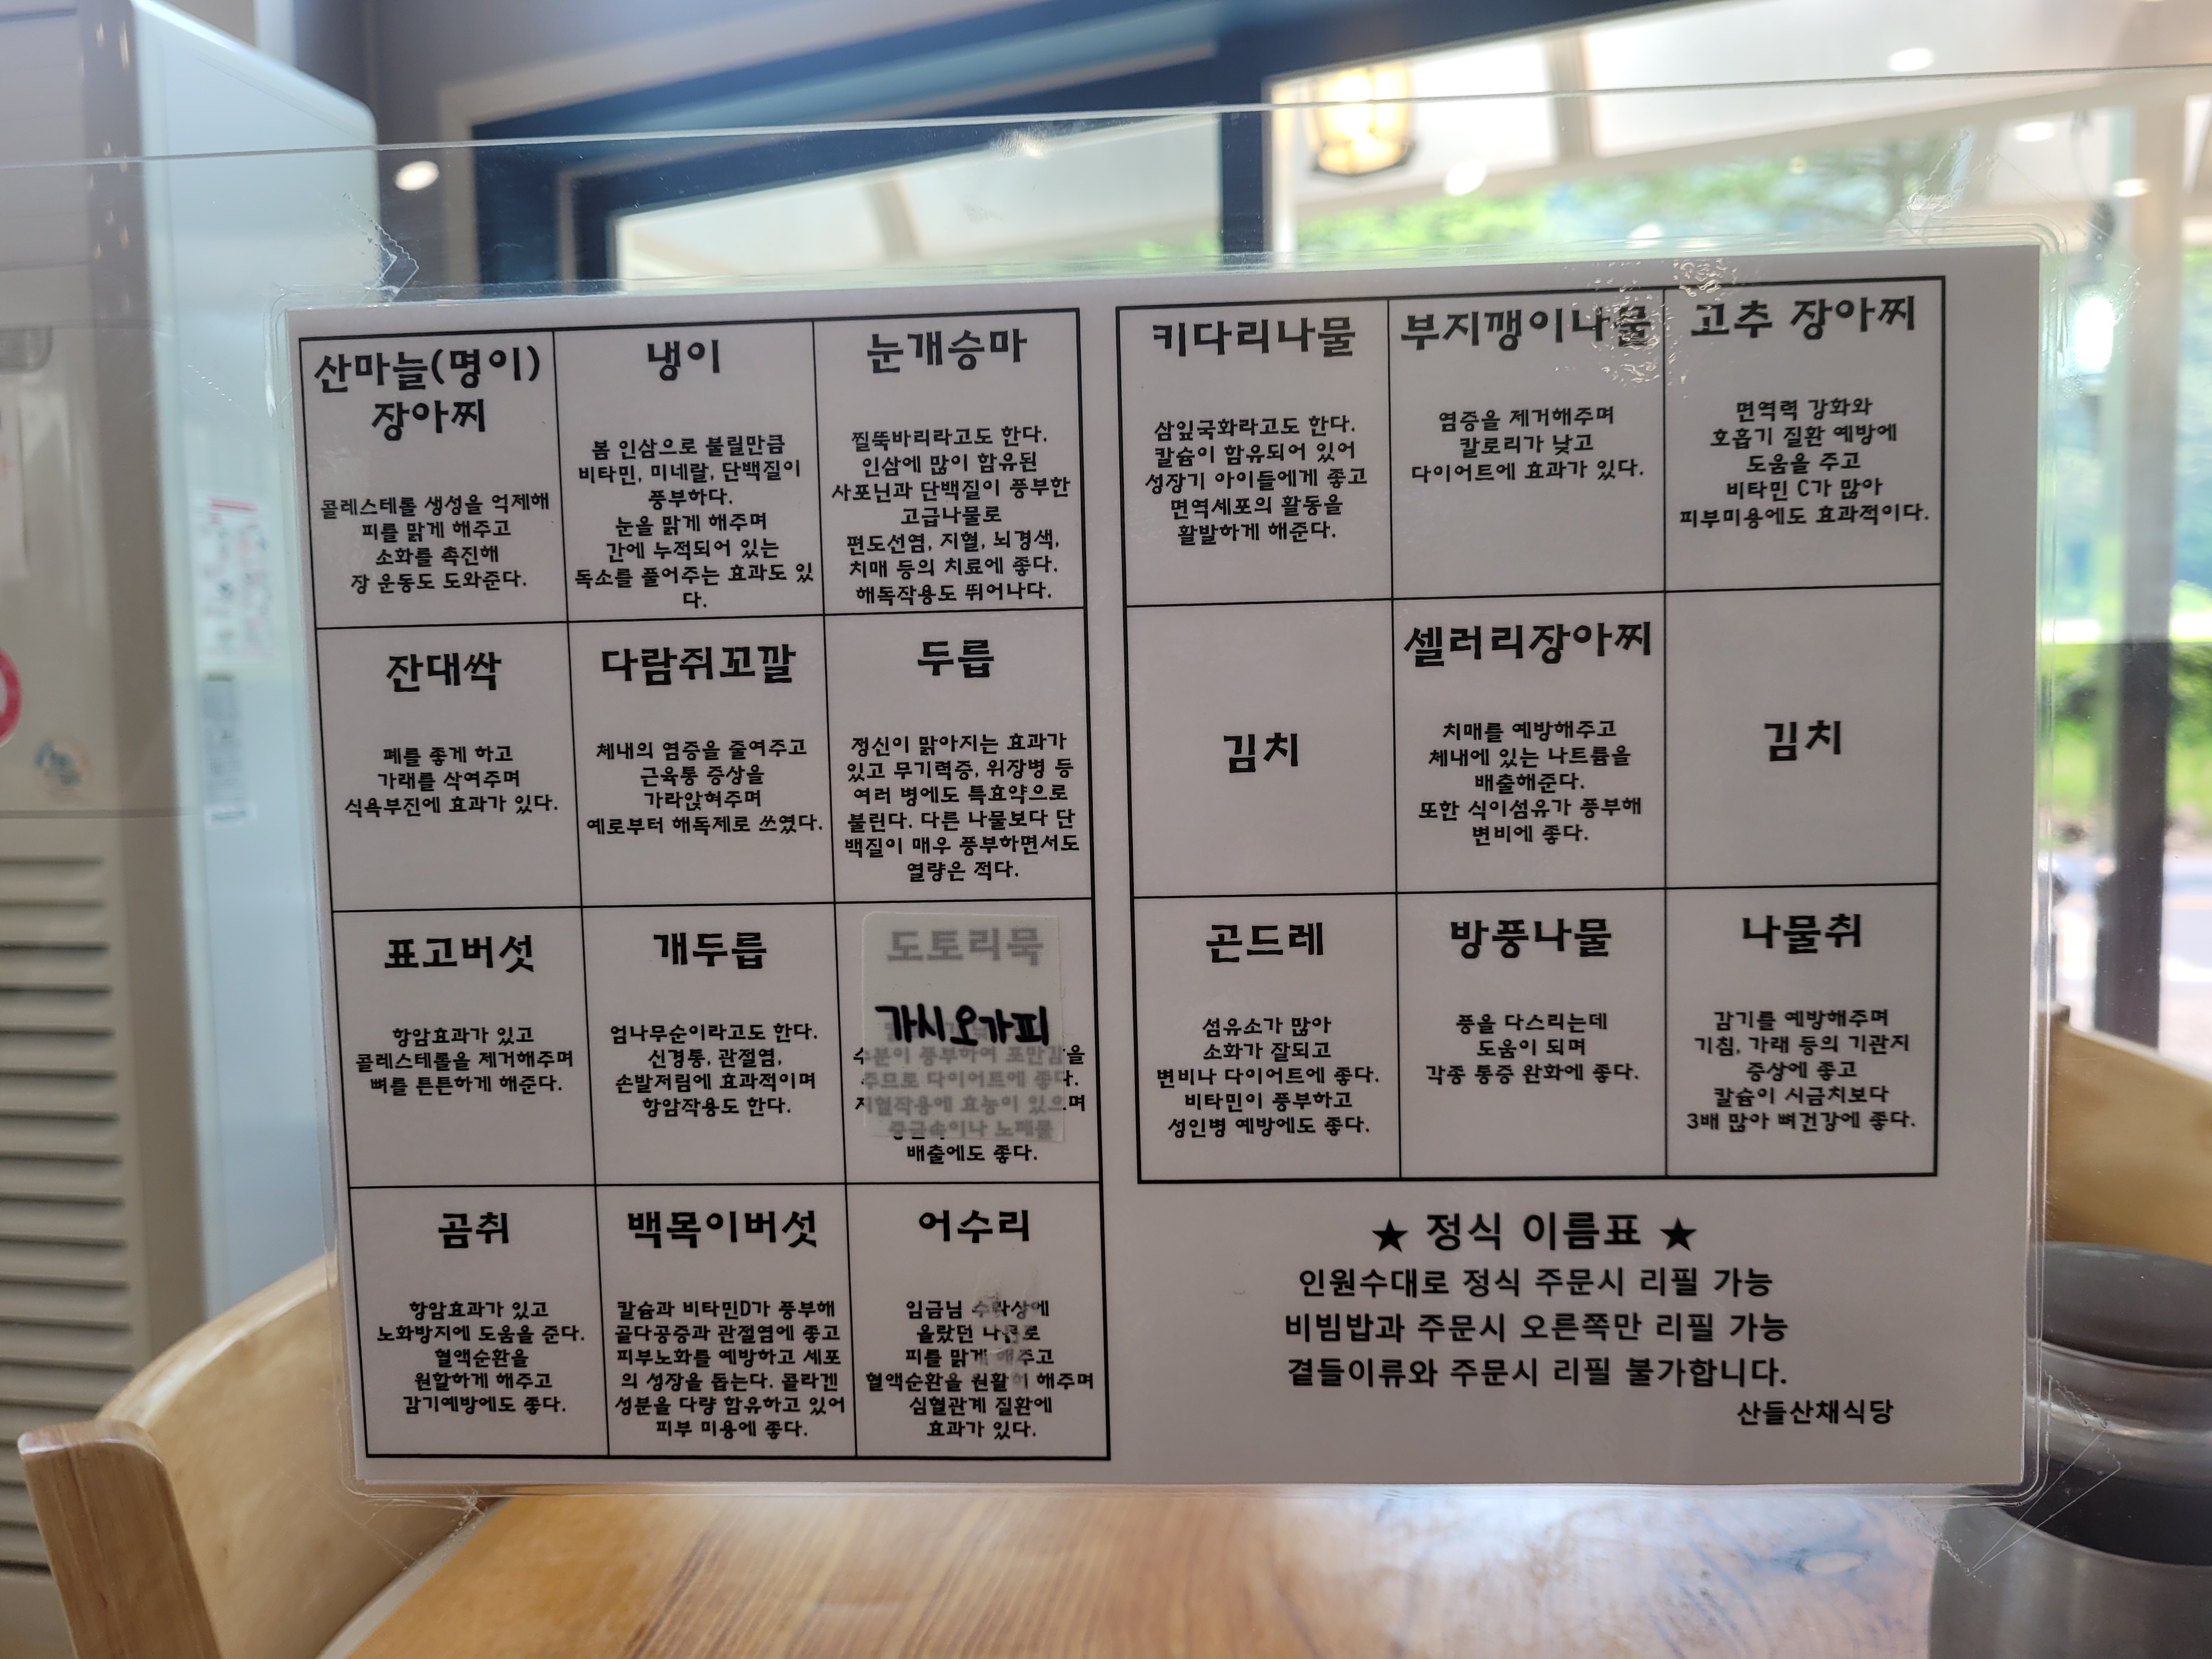 산마늘(명이)
장아찌
콜레스테롤 생성을 억제해
피를 맑게 해주고
소화를 촉진해
장 운동도 도와준다.
냉이
봄 인삼으로 불릴만큼
비타민, 미네랄, 단백질이
풍부하다.
눈을 맑게 해주며
간에 누적되어 있는
독소를 풀어주는 효과도 있
다.
눈개승마
찔뚝바리라고도 한다.
인삼에 많이 함유된
사포닌과 단백질이 풍부한
고급나물로
편도선염, 지혈, 뇌경색,
치매 등의 치료에 좋다.
해독작용도 뛰어나다.
잔대싹
폐를 좋게 하고
가래를 삭여주며
식욕부진에 효과가 있다.
다람쥐꼬깔
체내의 염증을 줄여주고
근육통 증상을
가라앉혀주며
예로부터 해독제로 쓰였다.
두릅
정신이 맑아지는 효과가
있고 무기력증, 위장병 등
여러 병에도 특효약으로
불린다. 다른 나물보다 단
백질이 매우 풍부하면서도
열량은 적다.
표고버섯
항암효과가 있고
콜레스테롤을 제거해주며
뼈를 튼튼하게 해준다.
개두릅
엄나무순이라고도 한다.
신경통, 관절염,
손발저림에 효과적이며
항암작용도 한다.
도토리묵
가시오가피
수분이 풍부하여 포만감을
주므로 다이어트에 좋다.
지혈작용에 효능이 있으며
중금속이나 노폐물
배출에도 좋다.
곰취
항암효과가 있고
노화방지에 도움을 준다.
혈액순환을
원할하게 해주고
감기예방에도 좋다.
백목이버섯
칼슘과 비타민D가 풍부해
골다공증과 관절염에 좋고
피부노화를 예방하고 세포
의 성장을 돕는다. 콜라겐
성분을 다량 함유하고 있어
피부 미용에 좋다.
어수리
임금님 수라상에
올랐던 나물로
피를 맑게 해주고
혈액순환을 원활히 해주며
심혈관계 질환에
효과가 있다.
키다리나물
삼잎국화라고도 한다.
칼슘이 함유되어 있어
성장기 아이들에게 좋고
면역세포의 활동을
활발하게 해준다.
부지깽이나물
염증을 제거해주며
칼로리가 낮고
다이어트에 효과가 있다.
고추 장아찌
면역력 강화와
호흡기 질환 예방에
도움을 주고
비타민 C가 많아
피부미용에도 효과적이다.
김치
셀러리장아찌
치매를 예방해주고
체내에 있는 나트륨을
배출해준다.
또한 식이섬유가 풍부해
변비에 좋다.
김치
곤드레
섬유소가 많아
소화가 잘되고
변비나 다이어트에 좋다.
비타민이 풍부하고
성인병 예방에도 좋다.
방풍나물
풍을 다스리는데
도움이 되며
각종 통증 완화에 좋다.
나물취
감기를 예방해주며
기침, 가래 등의 기관지
증상에 좋고
칼슘이 시금치보다
3배 많아 뼈건강에 좋다.
★ 정식 이름표 ★
인원수대로 정식 주문시 리필 가능
비빔밥과 주문시 오른쪽만 리필 가능
곁들이류와 주문시 리필 불가합니다.
산들산채식당